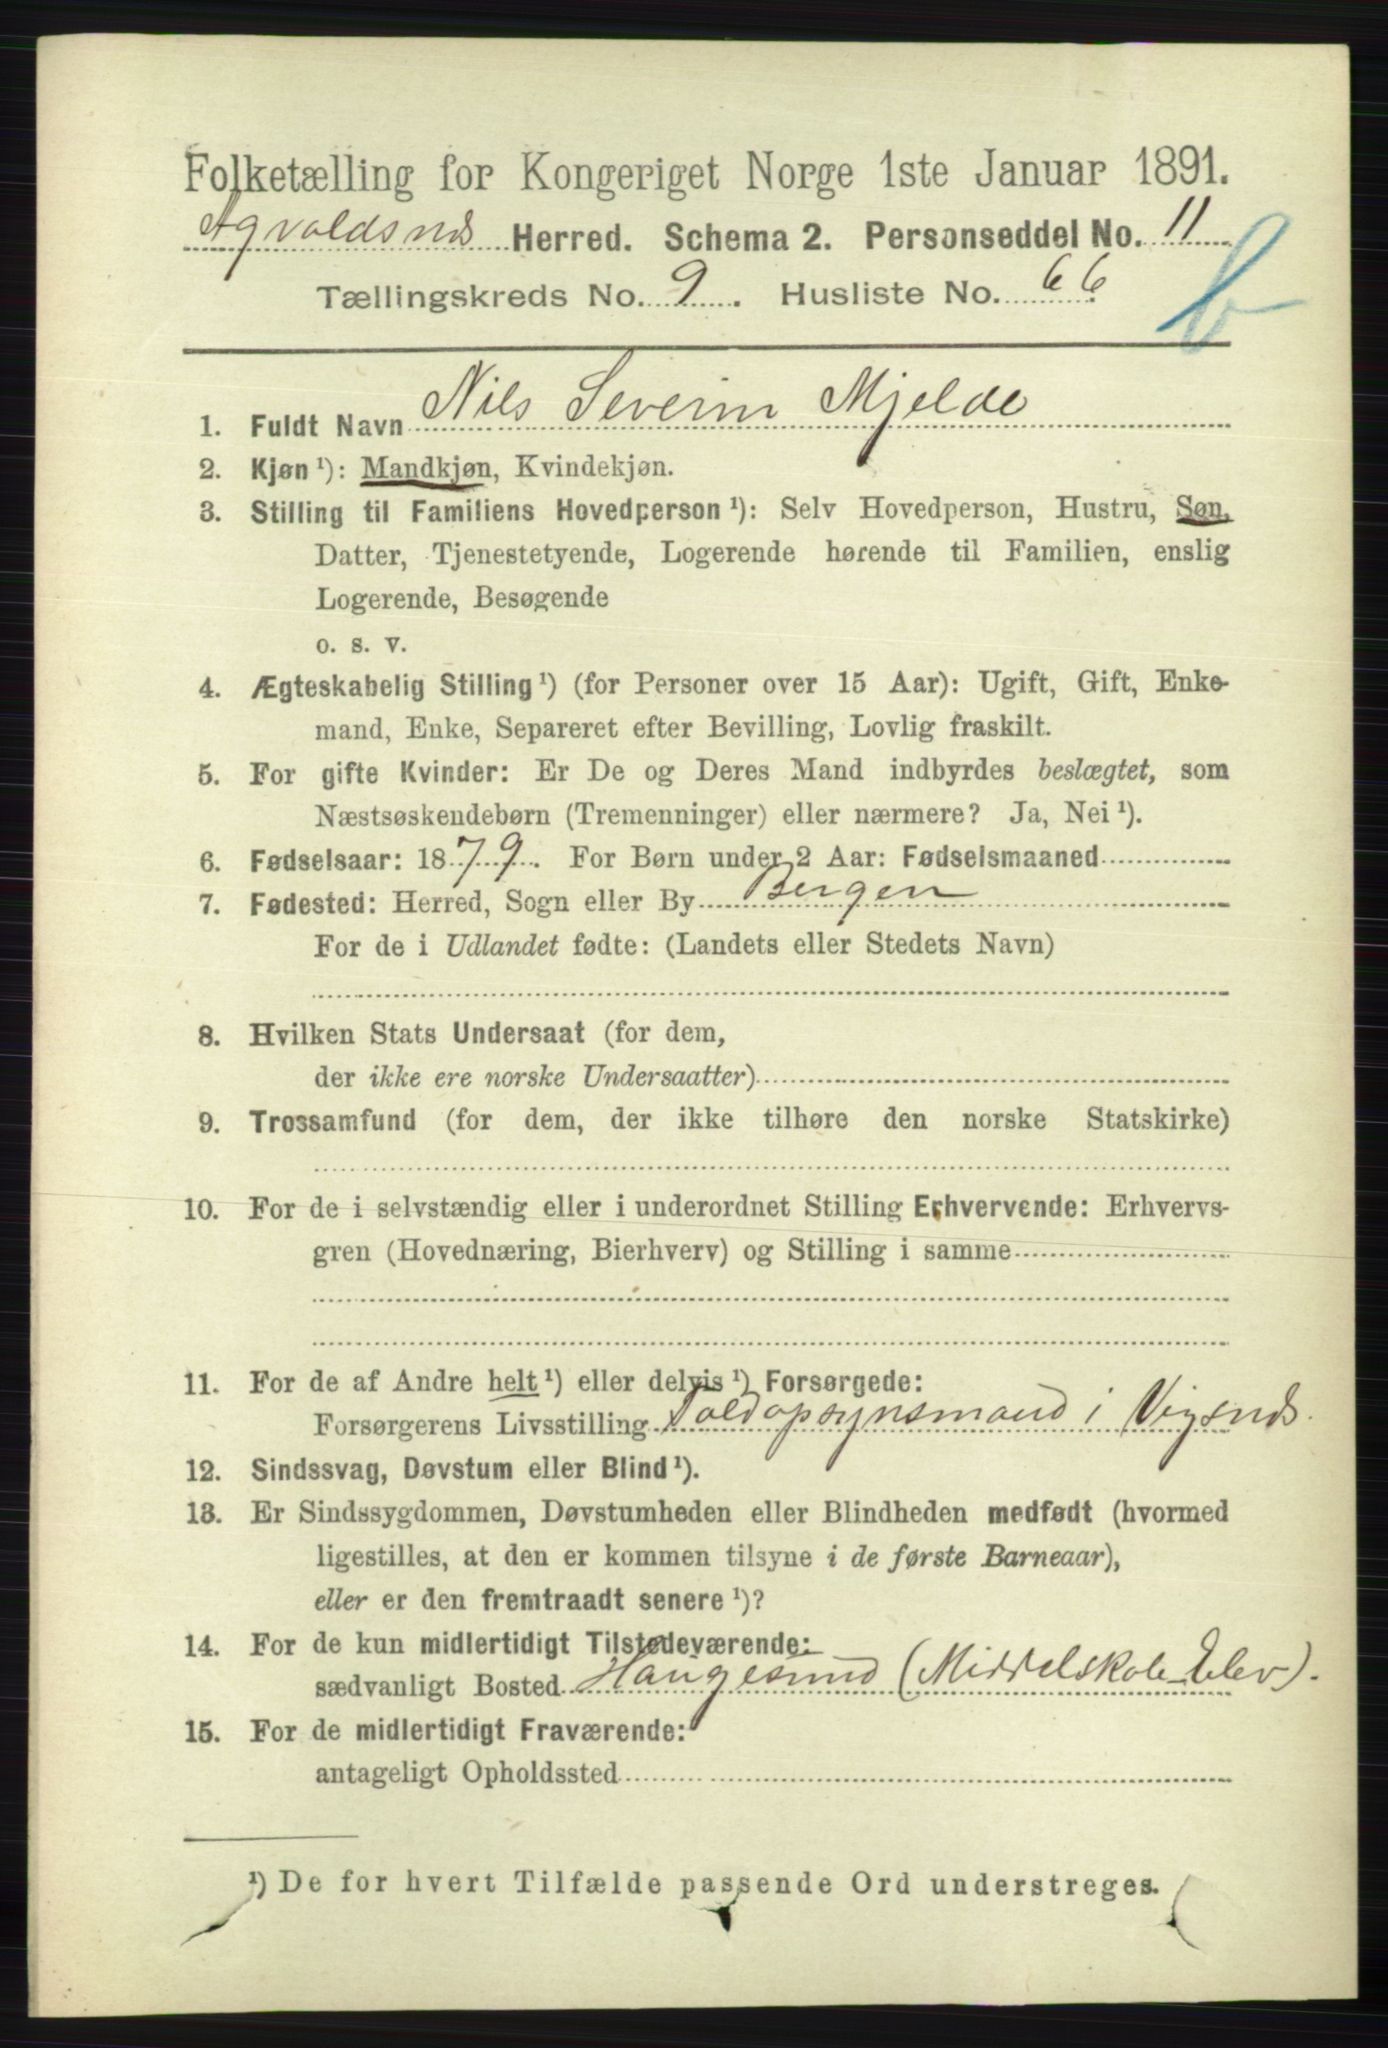 Folketælling for Kongeriget Norge 1ste Januar 1891.
Agvaldsnds Herred. Schema 2. Personseddel No. 11
Tællingskreds No. 9. Husliste No. 66
b
1. Fuldt Navn Nils Severin Mjelde
2. Kjøn ¹): Mandkjøn, Kvindekjøn.
3. Stilling til Familiens Hovedperson ¹): Selv Hovedperson, Hustru, Søn,
Datter, Tjenestetyende, Logerende hørende til Familien, enslig
Logerende, Besøgende
o. s. v.
4. Ægteskabelig Stilling ¹) (for Personer over 15 Aar): Ugift, Gift, Enke-
mand, Enke, Separeret efter Bevilling, Lovlig fraskilt.
5. For gifte Kvinder: Er De og Deres Mand indbyrdes beslægtet, som
Næstsøskendebørn (Tremenninger) eller nærmere? Ja, Nei ¹).
6. Fødselsaar: 1879. For Børn under 2 Aar: Fødselsmaaned
7. Fødested: Herred, Sogn eller By Bergen
For de i Udlandet fødte: (Landets eller Stedets Navn)
8. Hvilken Stats Undersaat (for dem,
der ikke ere norske Undersaatter)
9. Trossamfund (for dem, der ikke tilhøre den norske Statskirke)
10. For de i selvstændig eller i underordnet Stilling Erhvervende: Erhvervs-
gren (Hovednæring, Bierhverv) og Stilling i samme
11. For de af Andre helt ¹) eller delvis ¹) Forsørgede:
Forsørgerens Livsstilling Toldopsynsmand i Vigsnds.
12. Sindssvag, Døvstum eller Blind ¹).
13. Er Sindssygdommen, Døvstumheden eller Blindheden medfødt (hvormed
ligestilles, at den er kommen tilsyne i de første Barneaar),
eller er den fremtraadt senere ¹)?
14. For de kun midlertidigt Tilstedeværende:
sædvanligt Bosted Haugesund (Middelskole-Elev).
15. For de midlertidigt Fraværende:
antageligt Opholdssted
¹) De for hvert Tilfælde passende Ord understreges.